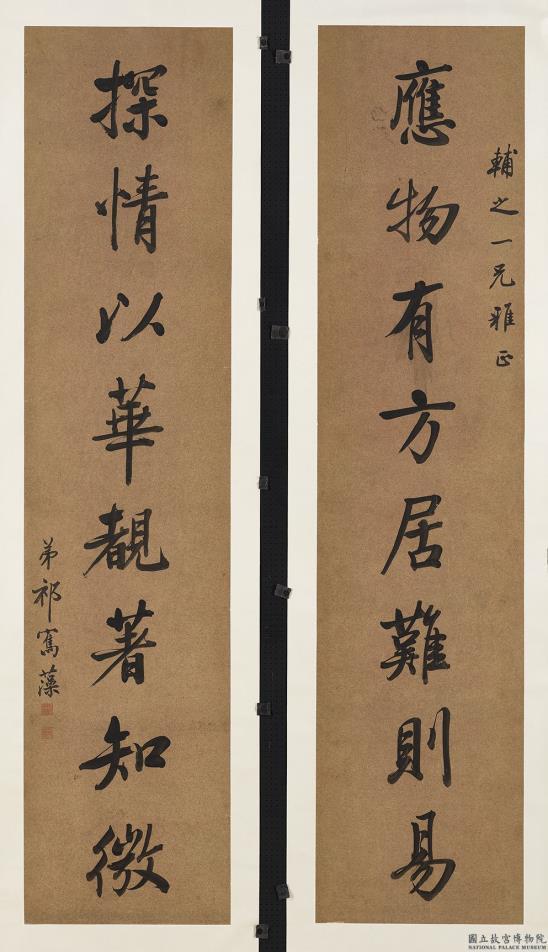 輔之一兄雅正
應物有方居難則易
探情以華覩著知微
弟祁寯藻
國立故宮博物院
NATIONAL PALACE MUSEUM